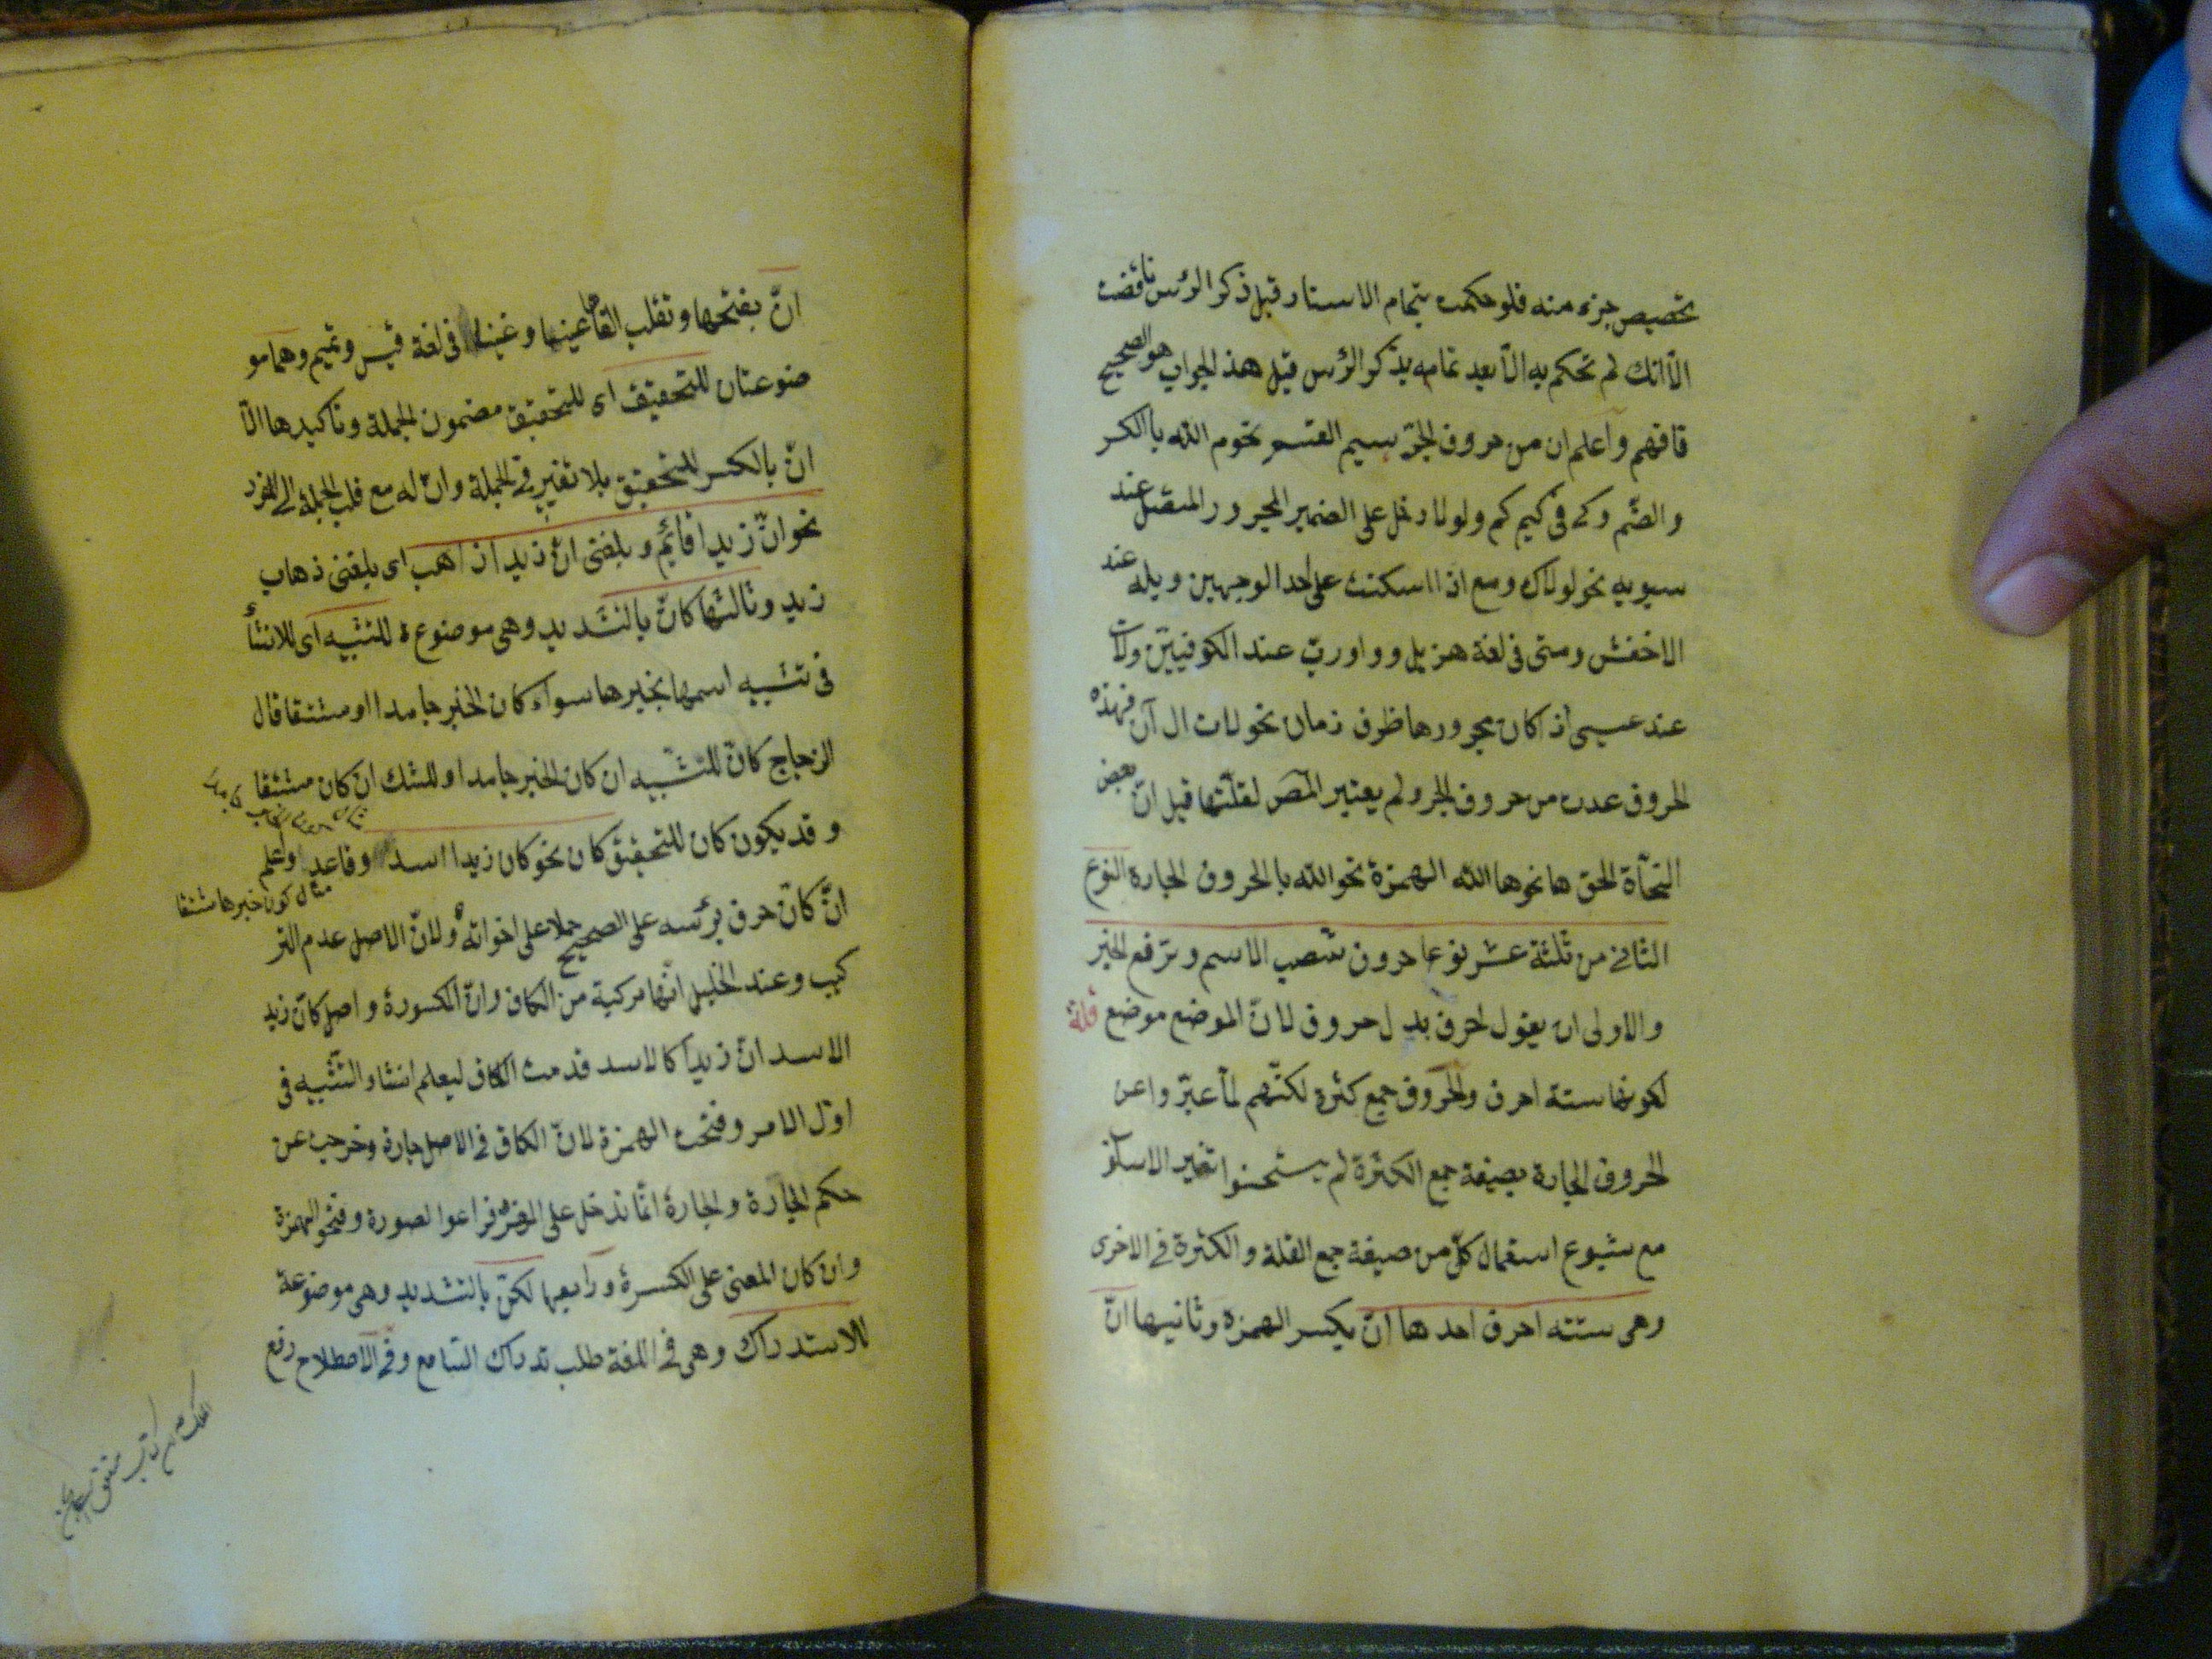 تخصيص جزء منه فلو حكمت بتمام الاسناد قبل ذكر الرئس ناقضت
الا انك لم تحكم به الا بعد تمامه بذكر الرئس قيل هذ الجواب هو الصحيح
فافهم واعلم ان من حروف الجر ميم القسم نحوم الله باالكسر
والضم وكى فى كيم كم ولولا دخل على الضمير المجرور المتصل عند
سيبويه نحو لولاك ومع اذا اسكنت على احد الوجهين وبله عند
الاخفش ومتى فى لغة هزيل وواو ربّ عند الكوفيين ولات
عند عيسى اذ اكان مجرورها ظرف زمان نحو لات ال آن فهذه
الحروف عدت من حروف الجر ولم يعتبر المص لقلّتها قيل انّ بعض
النحاة الحق ها نحوها الله الهمزة نحو الله با الحروف الجارة النوع
الثانى من ثلثة عشر نوعا حروف تنصب الاسم وترفع الخبر
والاولى ان يقول احرف بدل حروف لانّ الموضع موضع قلة
لكونها ستة احرف والحروف جمع كثرة لكنّهم لما عبّر واعن
الحروف الجارة بصيغة جمع الكثرة لم يستحسنوا تغير الاسلو
مع شيوع استعمال كلّ من صيغة جمع القلة والكثرة فى الاخرى
وهى ستته احرف احد ها انّ بكسر الهمزة وثانيها انّ
انّ بفتحها وتقلب الفاها عينها وغينا فى لغة قيس وتميم وهما مو
ضوعتان للتحقيق اى للتحقيق مضمون الجملة وتاكيدها الّا
انّ بالكسر للتحقيق بلا تغير فى الجملة وانّ له مع قلب الجملة الى المفرد
نحو انّ زيدا قائم وبلغنى انّ زيدا ذ اهب اى بلغنى ذهاب
زيد وثالثها كانّ بالتشديد وهى موضوع ة للتشبيه اى للانشأ
فى تشبيه اسمها بخبرها سواء كان الخبر جامدا او مشتقا قال
الزجاج كانّ للتشبيه ان كان الخبر جامدا وللشك ان كان مشتقا
وقد يكون كان للتحقيق كان نحو كان زيدا اسد وقاعد واعلم
مثال كون خبرها مشتقا
انّ كانّ حرف برئسه على الصحيح حملا على اخواته ولانّ الاصل عدم التر
كيب وعند الخليل انّها مركبة من الكاف وانّ المكسورة واصل كانّ زيد
الاسد انّ زيدا كالاسد قدمت الكاف ليعلم انشاء التشبيه فى
اوّل الامر وفتحت الهمزة لانّ الكاف فى الاصل جارة وخرجت عن
حكم الجارة والجارة انما تدخل على المفرد فراعوا لصورة وفتحو الهمزة
وان كان المعنى على الكسرة ورابعها لكنّ بالتشديد وهى موضوعة
للاستدراك وهى فى اللغة طلب تدراك السامع وفى الاصطلاح رفع